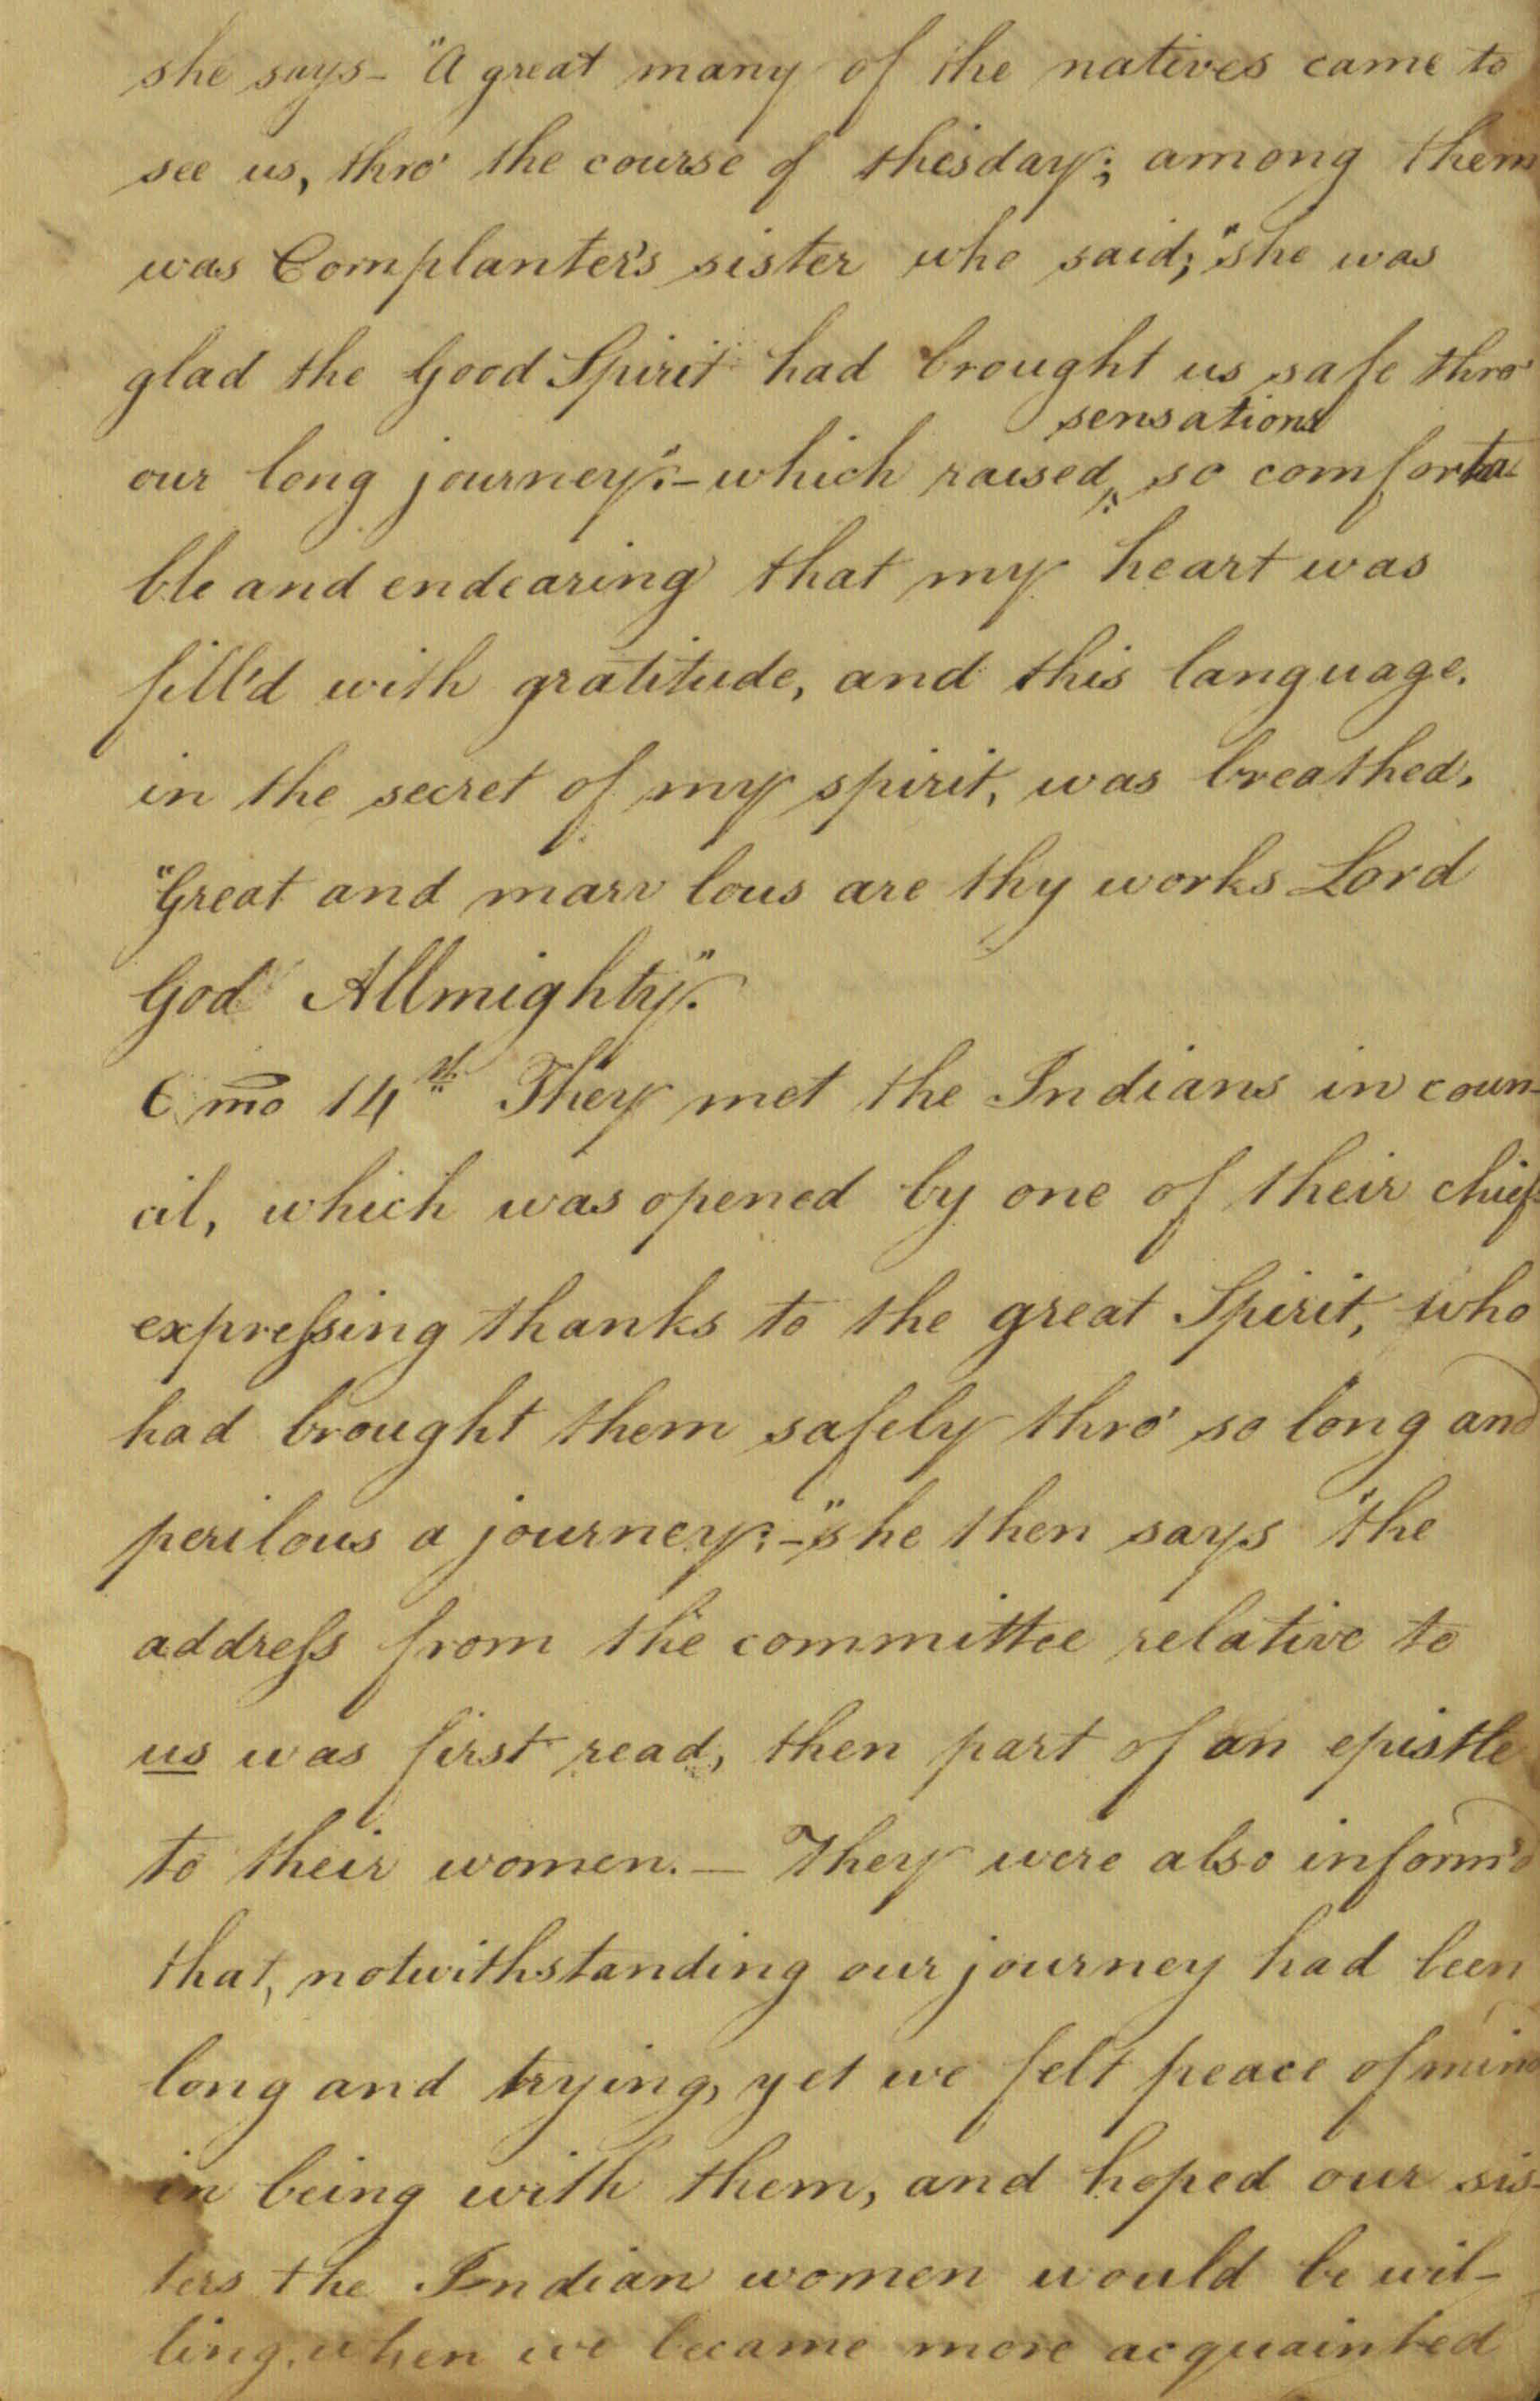 she says- "A great many of the natives came to
see us, thro' the course of thisday; among them
was Cornplanter's sister who said; "she was
glad the Good Spirit had brought us safe thro'
sensations
our long journey":- which raised ‸ so comforta-
ble and endearing that my heart was
fill'd with gratitude, and this language.
in the secret of my spirit, was breathed.
"Great and marv lous are thy works Lord
God Allmighty".
6 mo 14th They met the Indians in coun-
cil, which was opened by one of their chiefs
expreſsing thanks to the great Spirit, who
had brought them safely thro' so long and
perilous a journey:-" she then says "the
addreſs from the committee relative to
us was first read, then part of an epistle
to their women. — They were also inform'd
that, notwithstanding our journey had been
long and trying, yet we felt peace of mind
in being with them, and hoped our sis-
ters the Indian women would be wil-
ling, when we became more acquainted